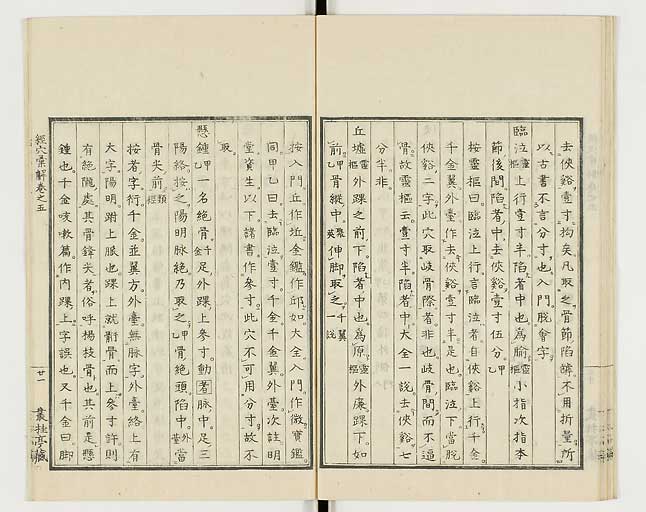 去俠谿壹寸拘矣凡取之骨節陷罅不用折量所
以古書不言分寸也入門脫會字
臨泣靈樞上行壹寸半陷者中也爲腧靈樞小指次指本
節後間陷者中去俠谿壹寸伍分甲乙
按靈樞曰臨泣上行言臨泣者自俠谿上行千金
千金翼外臺作去俠谿壹寸半是也臨泣下當脫
俠谿二字此穴取岐骨際者非也岐骨間而不逼
骨故靈樞云壹寸半陷者中大全一說去俠谿七
分半非
丘墟靈樞外踝之前下陷者中也爲原靈樞外廉踝下如
前甲乙骨縫中英伸脚取之千翼一說
按入門丘作坵金鑑作邱如大全入門作微寶鑑
同甲乙曰去臨泣壹寸千金千金翼外臺次註明
堂資生以下諸書作參寸此穴不可用分寸故不
取
懸鍾甲乙一名絶骨千金足外踝上參寸動者脉中足三
陽絡按之陽明脉絶乃取之甲乙骨絶頭陷中外臺當
骨尖前類經
按者字衍千金並翼方外臺無脉字外臺絡上有
大字陽明跗上脉也踝上就骭骨而上參寸許則
有絶隴處其骨鋒尖者俗呼楊枝骨也其前是懸
鍾也千金咳嗽篇作内踝上字誤也又千金曰脚
經穴彙解卷之五
廿一
叢桂亭藏